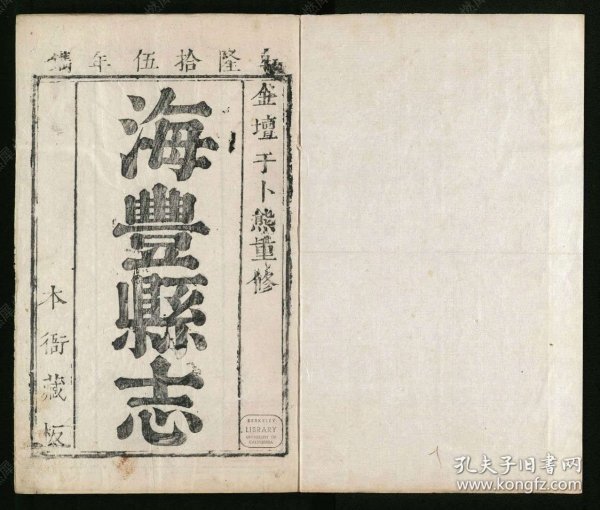 乾隆拾伍年鐫
金壇于卜熊重修
海豐縣志
本衙藏板
BERKELEY
LIBRARY
UNIVERSITY OF
CALIFORNIA
孔夫子旧书网
www.kongfz.com